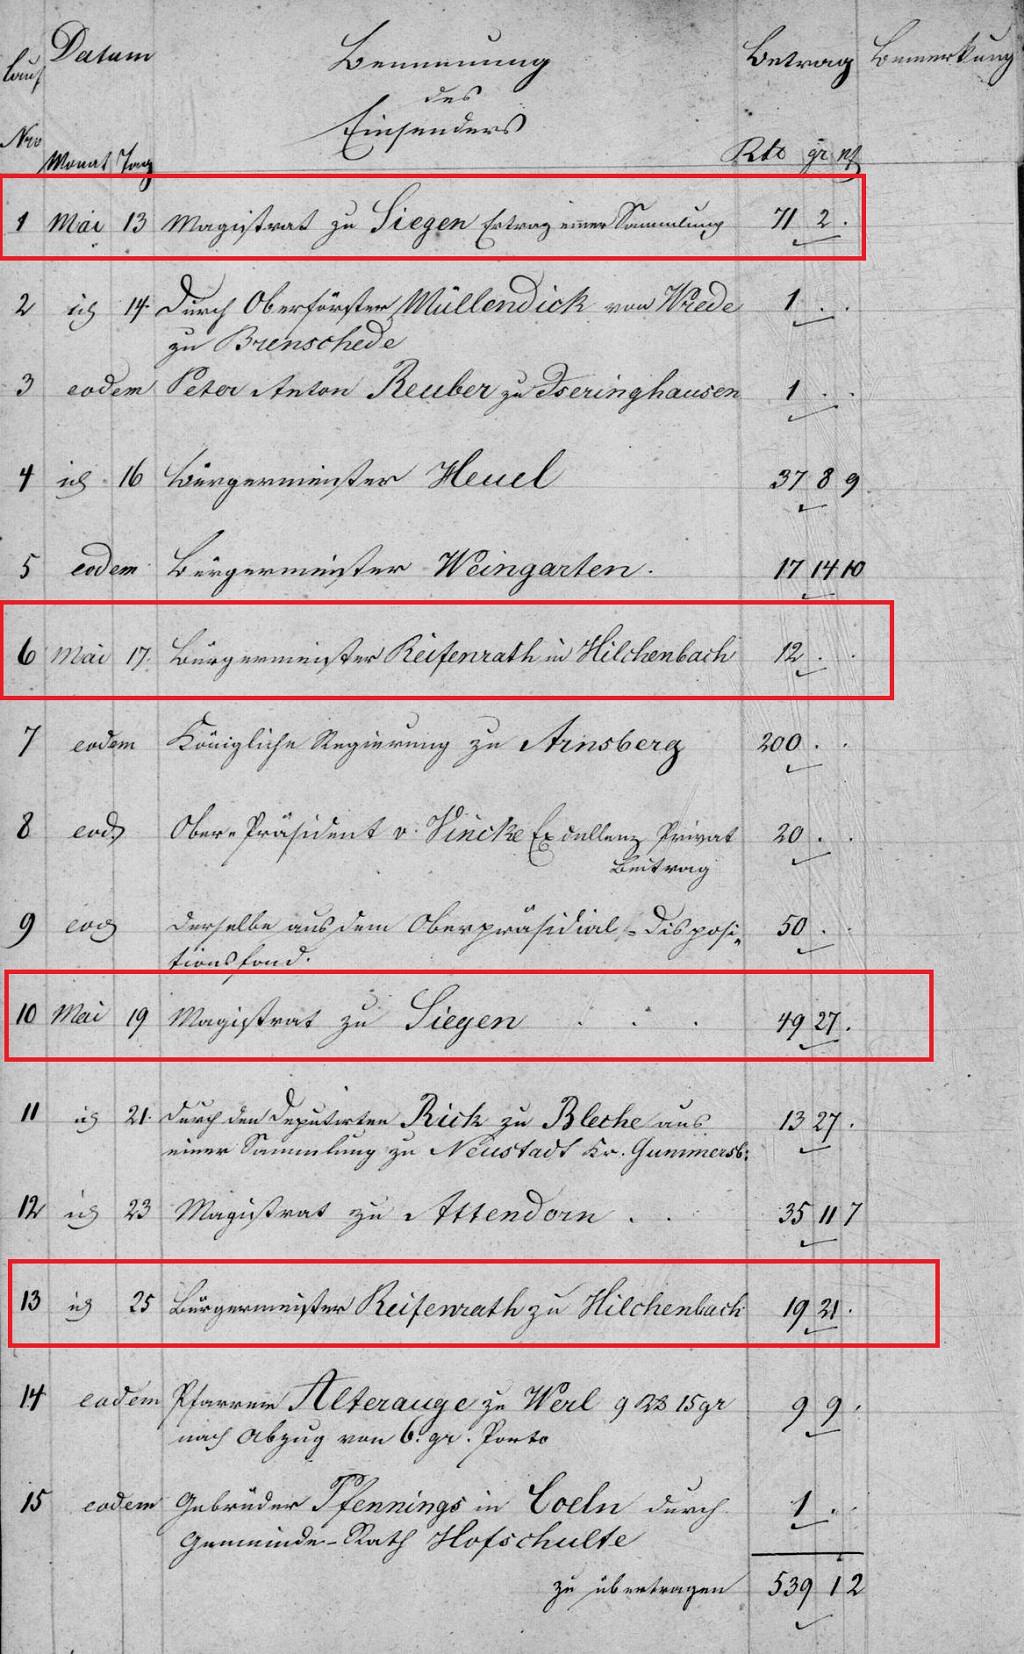 lauf Datum Benennung Betrag Bemerkung
des
Einsenders
Nro Monat Tag Rtr gr pf
1 Mai 13 Magistrat zu Siegen Ertrag einer Sammlung 71 2 .
2 id 14. Durch Oberförster Müllendick von Wrede 1 . .
zu Brenschede
3 eodem Peter Anton Reuber zu Iseringhausen 1 . .
4 id 16 Bürgermeister Heuel 37 8 9
5 eodem Bürgermeister Weingarten. 17 14 10
6 Mai 17. Bürgermeister Reifenrath in Hilchenbach 12 . .
7 eodem Königliche Regierung zu Arnsberg 200 . .
8 eod Ober-Präsident v. Vincke Excellenz Privat 20 . .
Beitrag
9 eod derselbe aus dem Oberpräsidial-Disposi- 50 . .
tionsfond.
10 Mai 19 Magistrat zu Siegen . . . 49 27 .
11 id 21. durch den Deputirten Rick zu Bleche aus 13 27 .
einer Sammlung zu Neustadt Kr. Gummersb:
12 id 23 Magistrat zu Attendorn . . 35 11 7
13 id 25 Bürgermeister Reifenrath zu Hilchenbach 19 21 .
14 eodem Pfarrer Alterauge zu Werl 9 15 gr 9 9 .
nach Abzug von 6. gr. Porto
15 eodem Gebrüder Pfennings in Coeln durch 1 . .
Gemeinde-Rath Hofschulte
zu übertragen 539 1 2